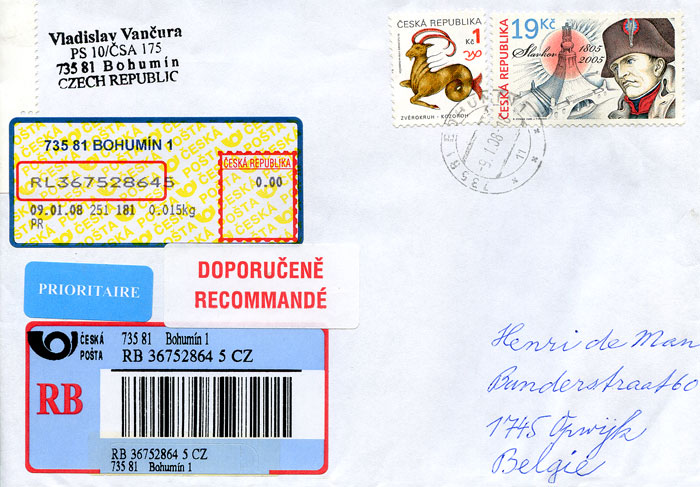 Vladislav Vančura
PS 10/ČSA 175
735 81 Bohumín
CZECH REPUBLIC
ČESKÁ REPUBLIKA
1
Kč
ZVĚROKRUH - KOZOROH
19 Kč
Slavkov 1805
2005
ČESKÁ REPUBLIKA
-9.1.08
11
735 81 BOHUMÍN 1
RL367528645
ČESKÁ REPUBLIKA
0.00
09.01.08 251 181 0.015kg
PR
ČESKÁ POŠTA
PRIORITAIRE
DOPORUČENĚ
RECOMMANDÉ
ČESKÁ
POŠTA
735 81 Bohumín 1
RB 36752864 5 CZ
RB
RB 36752864 5 CZ
735 81 Bohumín 1
Henri de Man
Banderstraat 60
1745 Opwijk
België